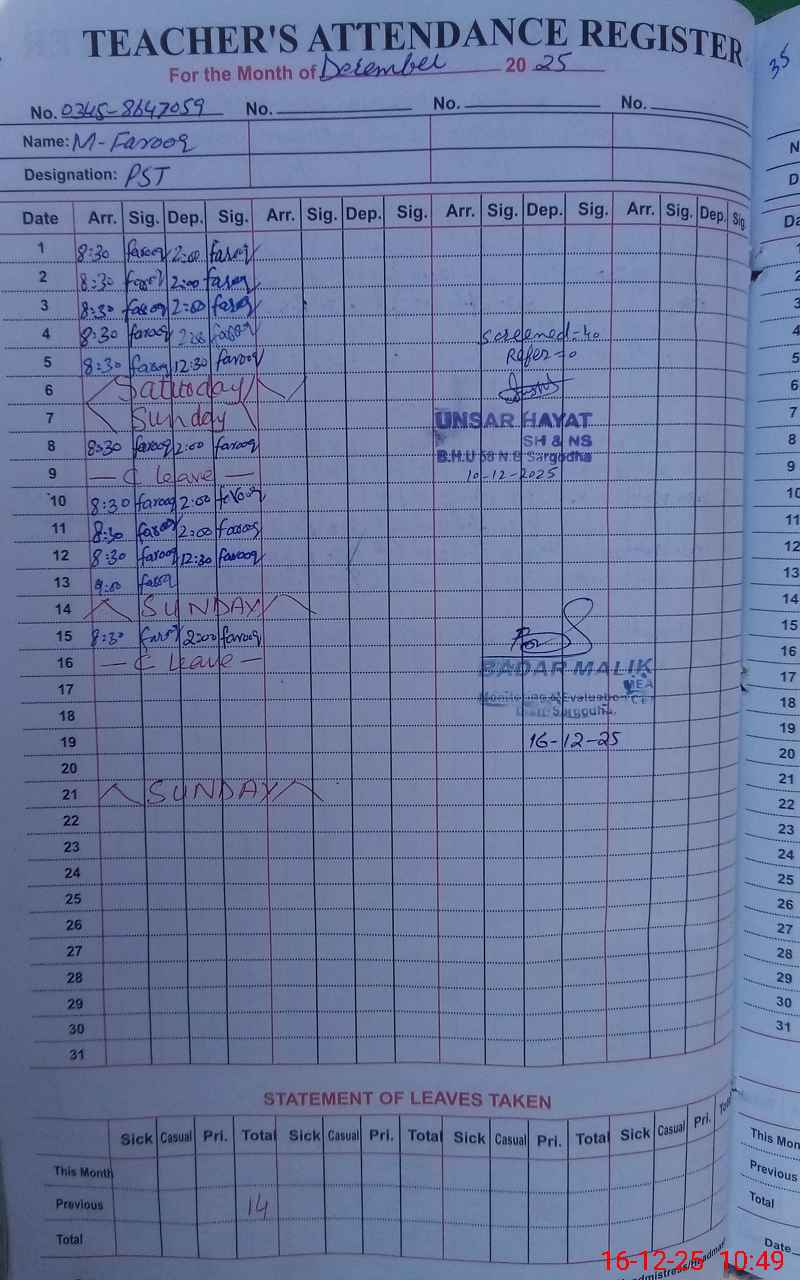 TEACHER'S ATTENDANCE REGISTER
For the Month of December 2025
35
No. 0345-8647059 No. No. No.
Name: M-Farooq
Designation: PST
Date Arr. Sig. Dep. Sig. Arr. Sig. Dep. Sig. Arr. Sig. Dep. Sig. Arr. Sig. Dep. Sig.
1 8:30 farooq 2:00 farooq
2 8:30 farooq 2:00 farooq
3 8:30 farooq 2:00 farooq
4 8:30 farooq 2:00 farooq
screened=40
5 8:30 farooq 12:30 farooq
Refer=0
6 Saturday
7 Sunday
UNSAR HAYAT
8 8:30 farooq 2:00 farooq
SH & NS
B.H.U 58 N.B Sargodha
9 — C leave —
10-12-2025
10 8:30 farooq 2:00 farooq
11 8:30 farooq 2:00 farooq
12 8:30 farooq 12:30 farooq
13 9:00 farooq
14 SUNDAY
15 8:30 farooq 2:00 farooq
16 — C leave —
BADAR MALIK
MEA
17
Monitoring & Evaluation
18
Sargodha
19
16-12-25
20
21 SUNDAY
22
23
24
25
26
27
28
29
30
31
STATEMENT OF LEAVES TAKEN
Sick Casual Pri. Total Sick Casual Pri. Total Sick Casual Pri. Total Sick Casual Pri.
This Month
Previous 14
Total
This Mon
Previous
Total
Date
16-12-25 10:49